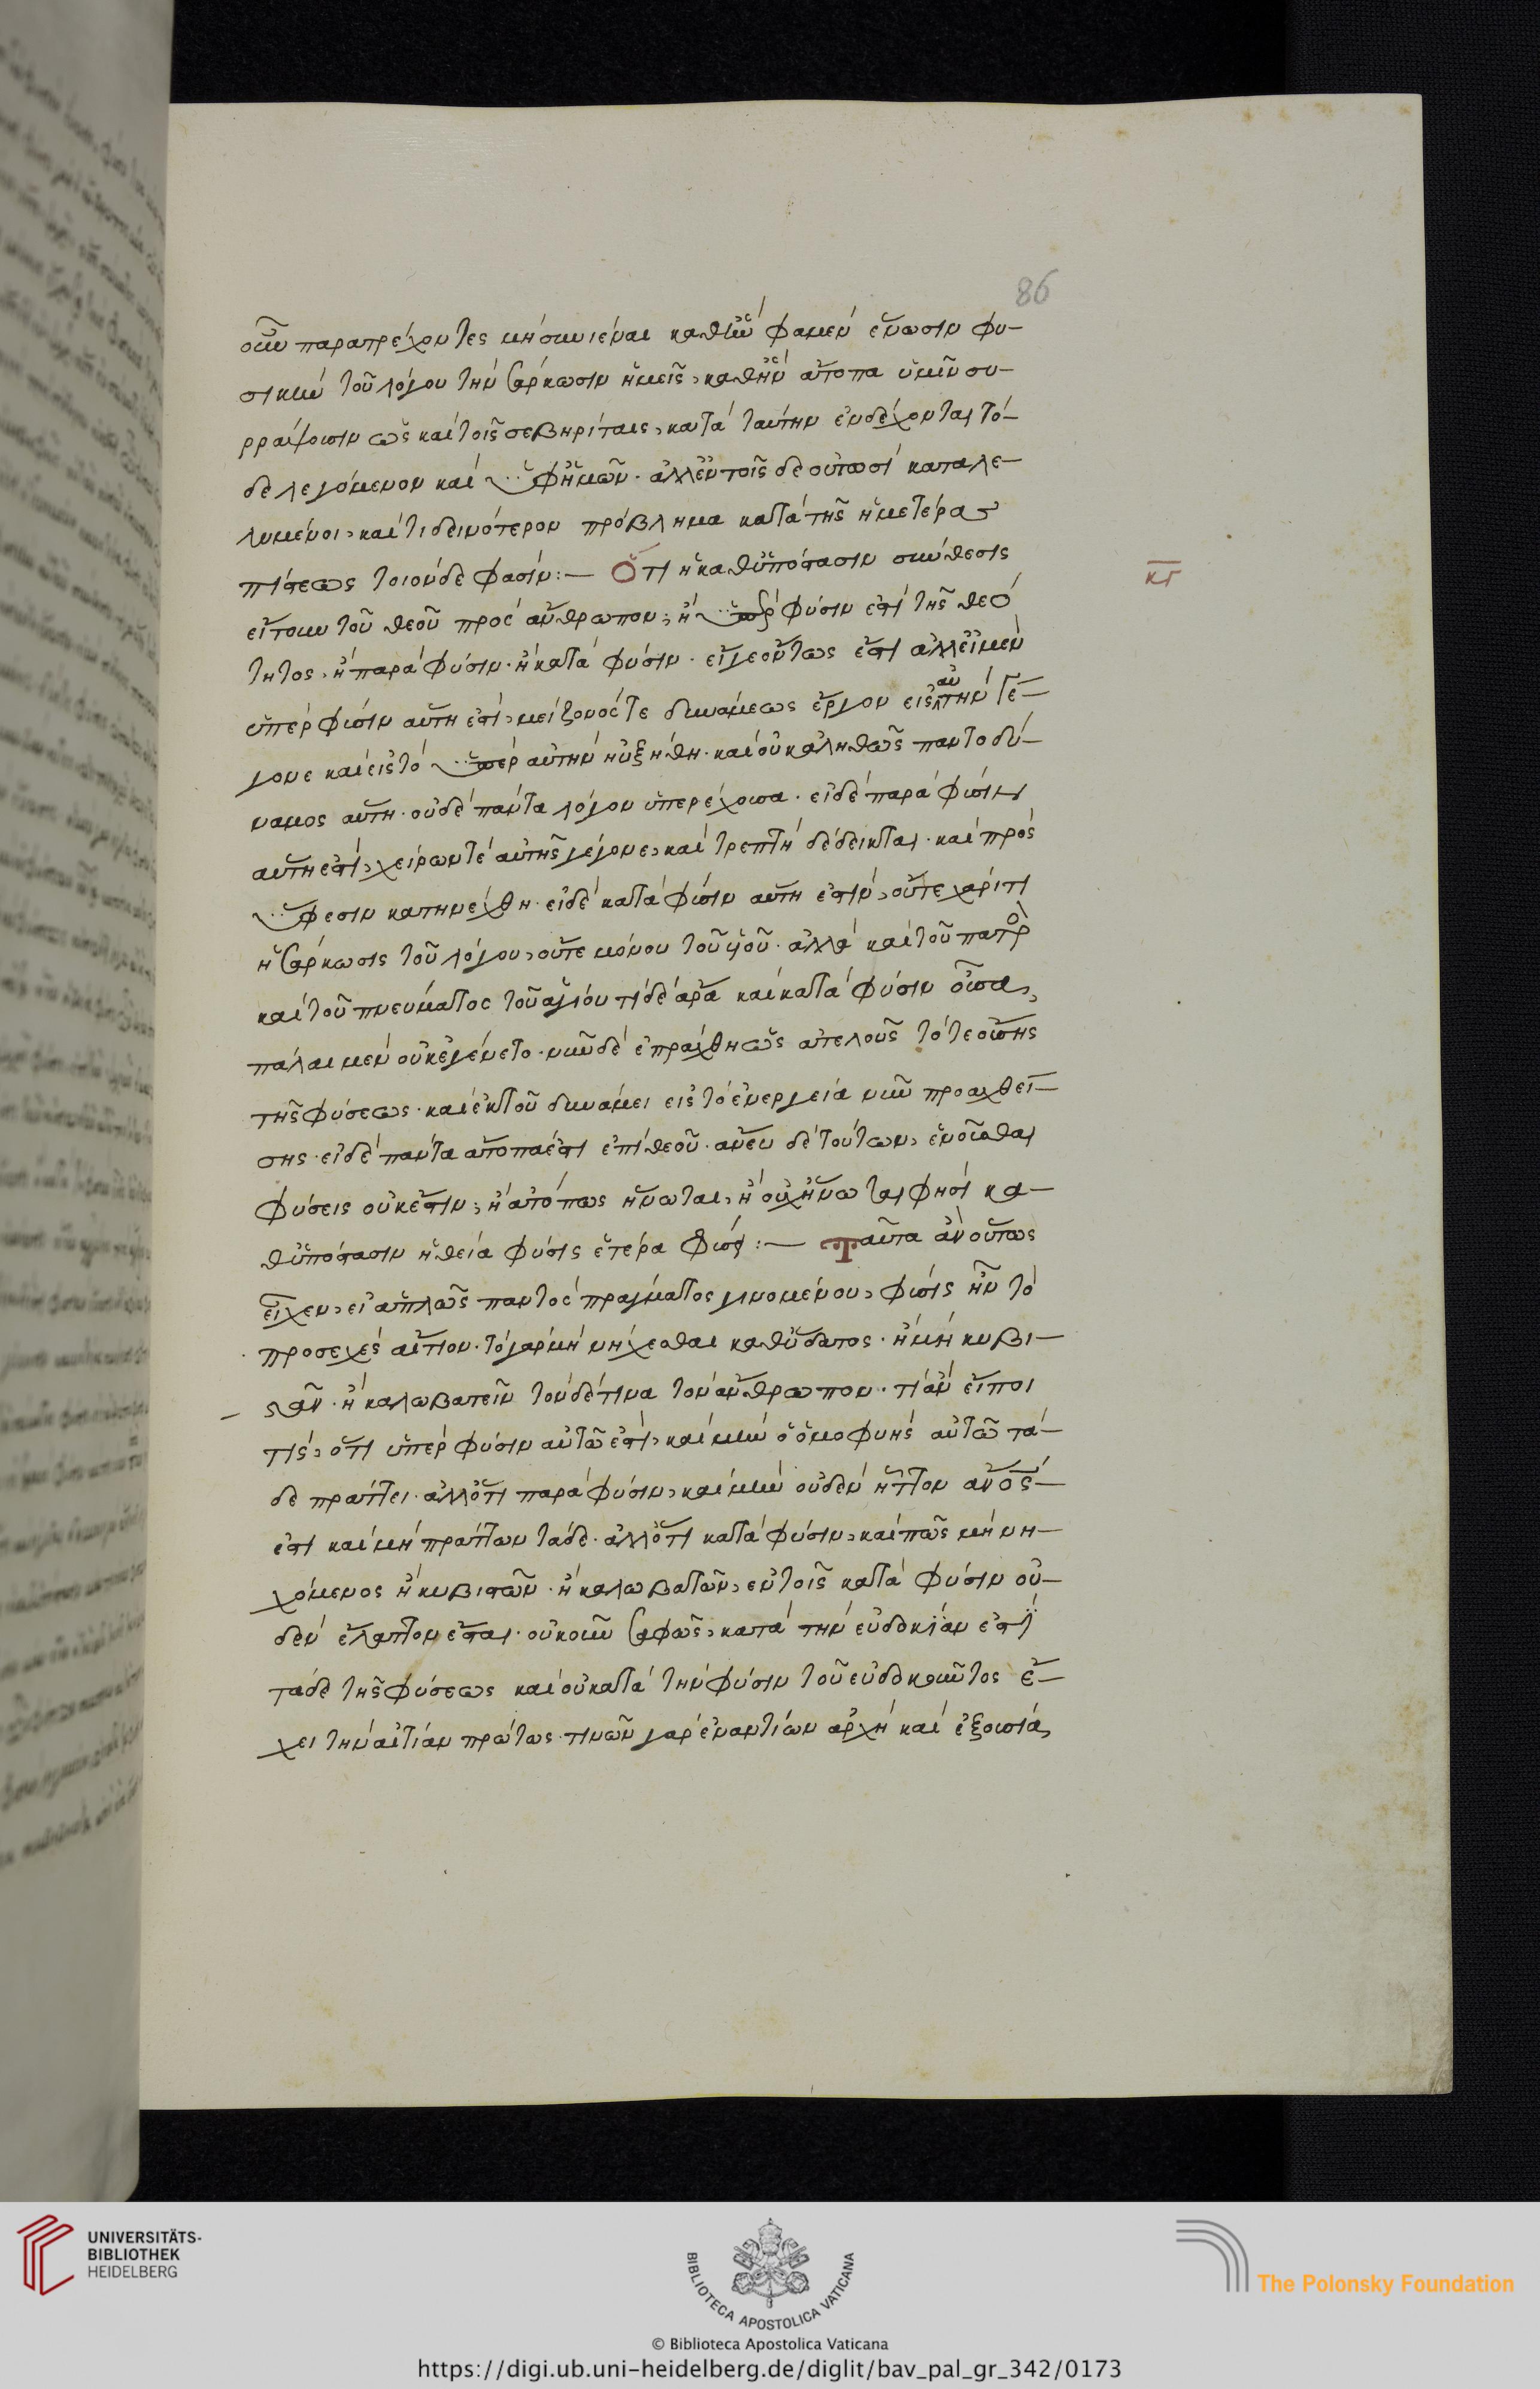 86
οὖν παρατρέχοντες μὴ συνιέναι καθ' ἣν φαμὲν ἕνωσιν φυ-
σικὴν τοῦ λόγου τὴν σάρκωσιν ἡμεῖς, καθ' ἣν ἄτοπα ὑμῖν συ-
ρράψωσιν ὡς καὶ τοῖς σεβηρίταις, κατὰ ταύτην ἐνδέχονται τό-
δε λεγόμενον καὶ ὑφ' ἡμῶν. ἀλλ' ἐν τοῖσδε οὑτωσὶ καταλε-
λυμένοι, καί τι δεινότερον πρόβλημα κατὰ τῆς ἡμετέρας
πίστεως τοιόνδε φασίν:— Ὅτι ἡ καθ' ὑπόστασιν σύνθεσις
κγ
εἴτουν τοῦ θεοῦ πρὸς ἄνθρωπον, ἢ ὑπὲρ φύσιν ἐστὶ τῆς θεό
τητος, ἢ παρὰ φύσιν. ἢ κατὰ φύσιν. εἴγε ὄντως ἐστί. ἀλλ' εἰ μὲν
ὑπὲρ φύσιν αὕτη ἐστί, μείζονός τε δυνάμεως ἔργον εἰς αὐτὴν γέ-
γονε καὶ εἰς τὸ ὑπὲρ αὐτὴν ηὐξήθη. καὶ οὐκ ἀληθῶς παντοδύ-
ναμος αὕτη. οὐδὲ πάντα λόγον ὑπερέχουσα. εἰ δὲ παρὰ φύσιν
αὕτη ἐστί, χείρων τὲ αὐτῆς γέγονε, καὶ τρεπτὴ δέδεικται. καὶ πρὸς
ὕφεσιν κατηνέχθη. εἰ δὲ κατὰ φύσιν αὕτη ἐστίν, οὔτε χάριτι
ἡ σάρκωσις τοῦ λόγου, οὔτε μόνου τοῦ υἱοῦ. ἀλλὰ καὶ τοῦ πατρὸς
καὶ τοῦ πνεύματος τοῦ ἁγίου τί δὲ ἄρα καὶ κατὰ φύσιν οὖσα,
πάλαι μὲν οὐκ ἐγένετο. νῦν δὲ ἐπράχθη ὡς ἀτελοῦς τότε οὔσης
τῆς φύσεως. καὶ ἐκ τοῦ δυνάμει εἰς τὸ ἐνεργεία νῦν προαχθεί-
σης. εἰ δὲ πάντα ἄτοπά ἐστι ἐπὶ θεοῦ. ἄνευ δὲ τούτων, ἑνοῦσθαι
φύσεις οὐκ ἔστιν, ἢ ἀτόπως ἥνωται, ἢ οὐχ ἥνωται φησὶ κα-
θ' ὑπόστασιν ἡ θεία φύσις ἑτέρα φύσει:— Ταῦτα ἂν οὕτως
εἶχεν, εἰ ἁπλῶς παντὸς πράγματος γινομένου, φύσις ἦν τὸ
προσεχὲς αἴτιον. τὸ γὰρ μὴ νήχεσθαι καθ' ὕδατος. ἢ μὴ κυβι-
στᾶν. ἢ καλωβατεῖν τόνδέ τινα τὸν ἄνθρωπον. τί ἂν εἴποι
τίς, ὅτι ὑπὲρ φύσιν αὐτῶ ἐστί, καὶ μὴν ὁ ὁμοφυὴς αὐτῶ τά-
δε πράττει. ἀλλ' ὅτι παρὰ φύσιν, καὶ μὴν οὐδὲν ἧττον ἄνος
ἐστι καὶ μὴ πράττων τάδε. ἀλλ' ὅτι κατὰ φύσιν, καὶ πῶς μὴ νη-
χόμενος ἢ κυβιστῶν. ἢ καλωβατῶν, ἐν τοῖς κατὰ φύσιν οὐ-
δὲν ἔλαττον ἔσται. οὐκοῦν σαφῶς, κατὰ τὴν εὐδοκίαν ἐστὶ
τάδε τῆς φύσεως καὶ οὐ κατὰ τὴν φύσιν τοῦ εὐδοκοῦντος ἔ-
χει τὴν αἰτίαν πρώτως. τινῶν γὰρ ἐναντίων ἀρχὴ καὶ ἐξουσία,
UNIVERSITÄTS-
BIBLIOTHEK
HEIDELBERG
BIBLIOTECA APOSTOLICA VATICANA
The Polonsky Foundation
© Biblioteca Apostolica Vaticana
https://digi.ub.uni-heidelberg.de/diglit/bav_pal_gr_342/0173